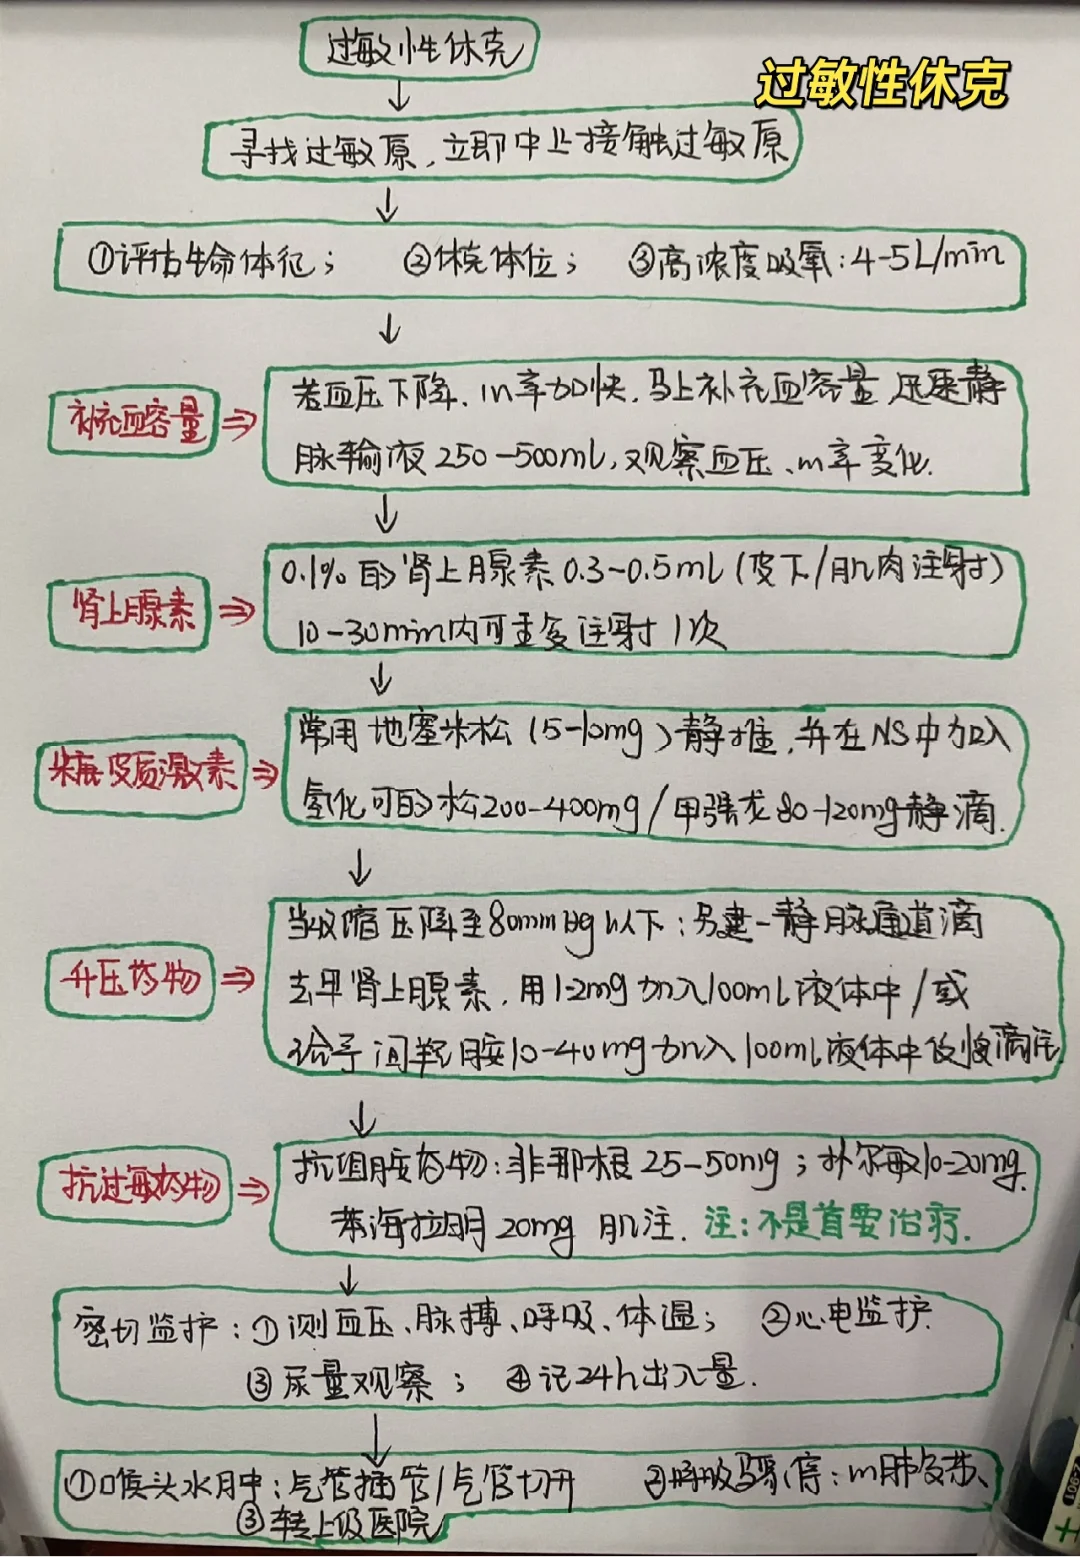 过敏性休克
过敏性休克
寻找过敏原,立即中止接触过敏原
①评估生命体征; ②休克体位; ③高浓度吸氧:4-5L/min
补充血容量
若血压下降、心率加快,马上补充血容量,迅速静
脉输液250-500ml,观察血压、心率变化.
肾上腺素
0.1%的肾上腺素0.3~0.5ml(皮下/肌肉注射)
10-30min内可重复注射1次
糖皮质激素
常用地塞米松(5-10mg)静推,并在NS中加入
氢化可的松200-400mg/甲强龙80-120mg静滴.
升压药物
当收缩压降至80mmHg以下:另建一静脉通道滴
去甲肾上腺素,用1-2mg加入100ml液体中/或
给予间羟胺10-40mg加入100ml液体中缓慢滴注.
抗过敏药物
抗组胺药物:非那根25-50mg;扑尔敏10-20mg.
苯海拉明20mg 肌注. 注:不是首要治疗.
密切监护:①测血压、脉搏、呼吸、体温; ②心电监护.
③尿量观察; ④记24h出入量.
①喉头水肿:气管插管/气管切开 ②呼吸骤停:心肺复苏、
③转上级医院